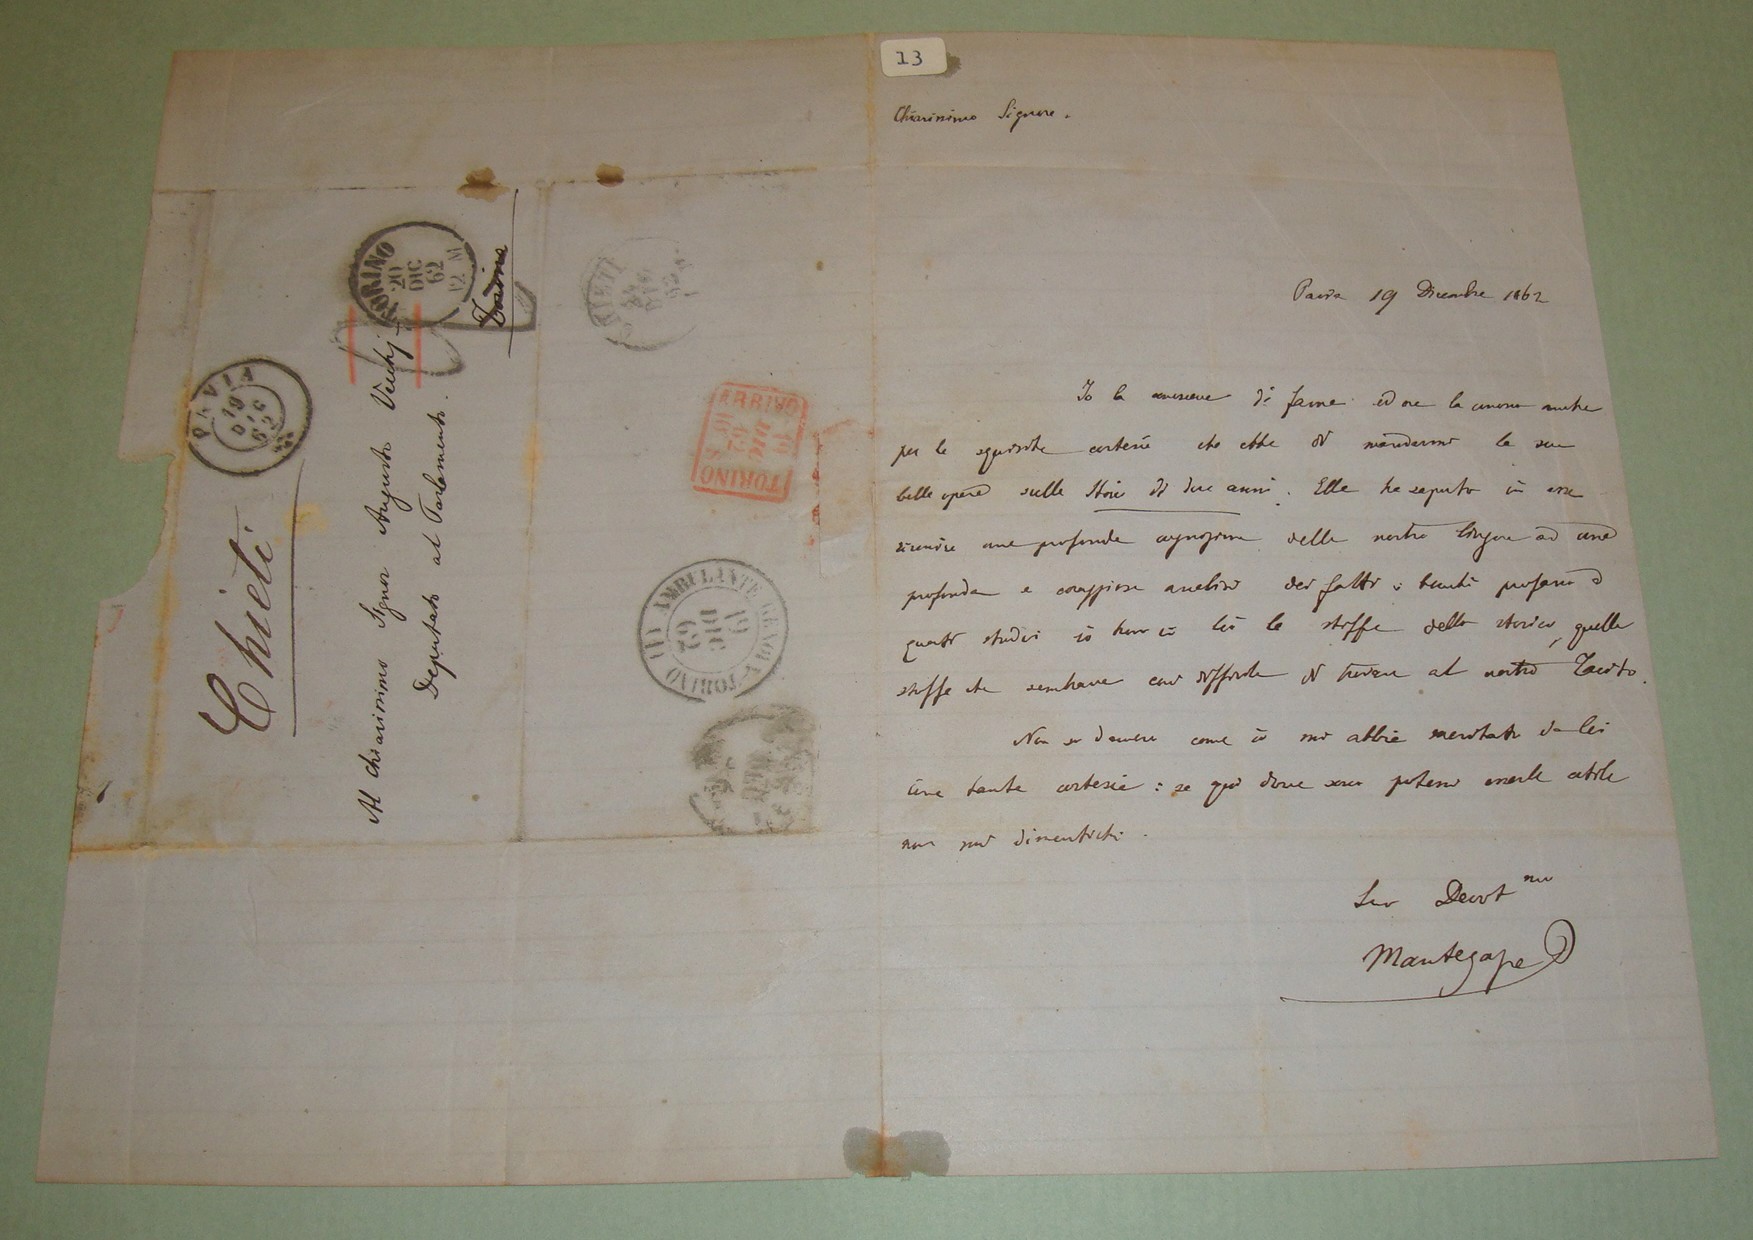 13
Chiarissimo Signore.
Pavia 19 Dicembre 1862
Io la conosceva di fama ed ora la conosco anche
per la squisita cortesia che ebbe di mandarmi la sua
bella opera sulla Storia di due anni. Ella ha saputo in essa
una profonda cognizione della nostra lingua ad una
profonda e coraggiosa analisi dei fatti:
questi studii io trovo in lei la stoffa dello storico, quella
stoffa che sembrava così difficile di trovare al nostro Tacito.
Non so davvero come io mi abbia meritato da lei
una tanta cortesia: se qui dove sono potessi esserle utile
non mi dimentichi.
Suo Devot mo
Mantegazza P
Al chiarissimo Signor Augusto Vecchj
Deputato al Parlamento.
Torino
Chieti
PAVIA
19
DIC
62
TORINO
20
DIC
62
12 M
CHIETI
DIC
ARRIVO
19
DIC
62
TORINO
AMBULANTE GENOVA-TORINO (1)
19
DIC
62